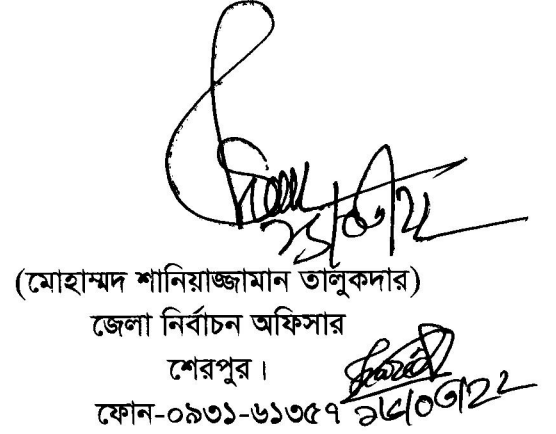 (মোহাম্মদ শানিয়াজ্জামান তালুকদার)
জেলা নির্বাচন অফিসার
শেরপুর।
ফোন-০৯৩১-৬১৩৫৭